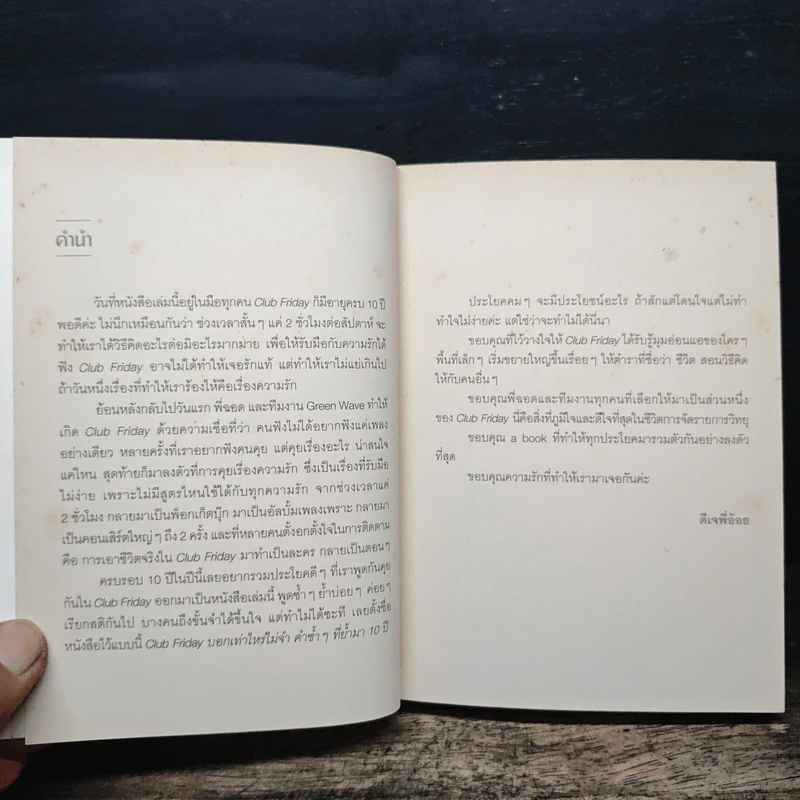 คำนำ
วันที่หนังสือเล่มนี้อยู่ในมือทุกคน Club Friday ก็มีอายุครบ 10 ปี
พอดีค่ะ ไม่นึกเหมือนกันว่า ช่วงเวลาสั้นๆ แค่ 2 ชั่วโมงต่อสัปดาห์ จะ
ทำให้เราได้วิธีคิดอะไรต่อมิอะไรมากมาย เพื่อให้รับมือกับความรักได้
ฟัง Club Friday อาจไม่ได้ทำให้เจอรักแท้ แต่ทำให้เราไม่แย่เกินไป
ถ้าวันหนึ่งเรื่องที่ทำให้เราร้องไห้คือเรื่องความรัก
ย้อนหลังกลับไปวันแรก พี่ฉอด และทีมงาน Green Wave ทำให้
เกิด Club Friday ด้วยความเชื่อที่ว่า คนฟังไม่ได้อยากฟังแค่เพลง
อย่างเดียว หลายครั้งที่เราอยากฟังคนคุย แต่คุยเรื่องอะไร น่าสนใจ
แค่ไหน สุดท้ายก็มาลงตัวที่การคุยเรื่องความรัก ซึ่งเป็นเรื่องที่รับมือ
ไม่ง่าย เพราะไม่มีสูตรไหนใช้ได้กับทุกความรัก จากช่วงเวลาแค่
2 ชั่วโมง กลายมาเป็นพ็อกเก็ตบุ๊ก มาเป็นอัลบั้มเพลงเพราะ กลายมา
เป็นคอนเสิร์ตใหญ่ๆ ถึง 2 ครั้ง และที่หลายคนตั้งอกตั้งใจในการติดตาม
คือ การเอาชีวิตจริงใน Club Friday มาทำเป็นละคร กลายเป็นตอนๆ
ครบรอบ 10 ปีในปีนี้เลยอยากรวมประโยคดีๆ ที่เราพูดกันคุย
กันใน Club Friday ออกมาเป็นหนังสือเล่มนี้ พูดซ้ำๆ ย้ำบ่อยๆ ค่อยๆ
เรียกสติกันไป บางคนถึงขั้นจำได้ขึ้นใจ แต่ทำไม่ได้ซะที เลยตั้งชื่อ
หนังสือไว้แบบนี้ Club Friday บอกเท่าไหร่ไม่จำ คำซ้ำๆ ที่ย้ำมา 10 ปี
ประโยคคมๆ จะมีประโยชน์อะไร ถ้าสักแต่โดนใจแต่ไม่ทำ
ทำใจไม่ง่ายค่ะ แต่ใช่ว่าจะทำไม่ได้นี่นา
ขอบคุณที่ไว้วางใจให้ Club Friday ได้รับรู้มุมอ่อนแอของใครๆ
พื้นที่เล็กๆ เริ่มขยายใหญ่ขึ้นเรื่อยๆ ให้ตำราที่ชื่อว่า ชีวิต สอนวิธีคิด
ให้กับคนอื่นๆ
ขอบคุณพี่ฉอดและทีมงานทุกคนที่เลือกให้มาเป็นส่วนหนึ่ง
ของ Club Friday นี่คือสิ่งที่ภูมิใจและดีใจที่สุดในชีวิตการจัดรายการวิทยุ
ขอบคุณ a book ที่ทำให้ทุกประโยคมารวมตัวกันอย่างลงตัว
ที่สุด
ขอบคุณความรักที่ทำให้เรามาเจอกันค่ะ
ดีเจพี่อ้อย